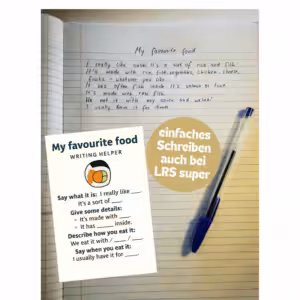 My favourite food
I really like sushi. It's a sort of rice and fish.
It's made with rice, fish, vegetables, chicken, cheese,
fruits - whatever you like.
It has often fish inside. It's salmon or tuna.
It's made with raw fish.
We eat it with soy sauce and wasabi.
I usually have it for dinner.
My favourite food
WRITING HELPER
Say what it is: I really like ___.
It's a sort of ___.
Give some details:
· It's made with ___.
· It has ___ inside.
Describe how you eat it:
We eat it with / ___ / ___.
Say when you eat it:
I usually have it for ___.
einfaches
Schreiben
auch bei
LRS super